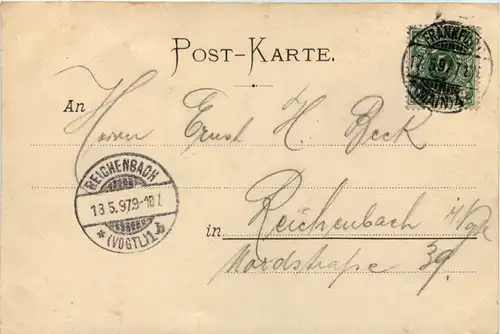 POST-KARTE.
FRANKFURT
(MAIN)
An
Herrn Ernst H. Beck
REICHENBACH
13.5.97.9-10V.
*(VOGTL)1
in Reichenbach i/Vgtl
Nordstraße 39.